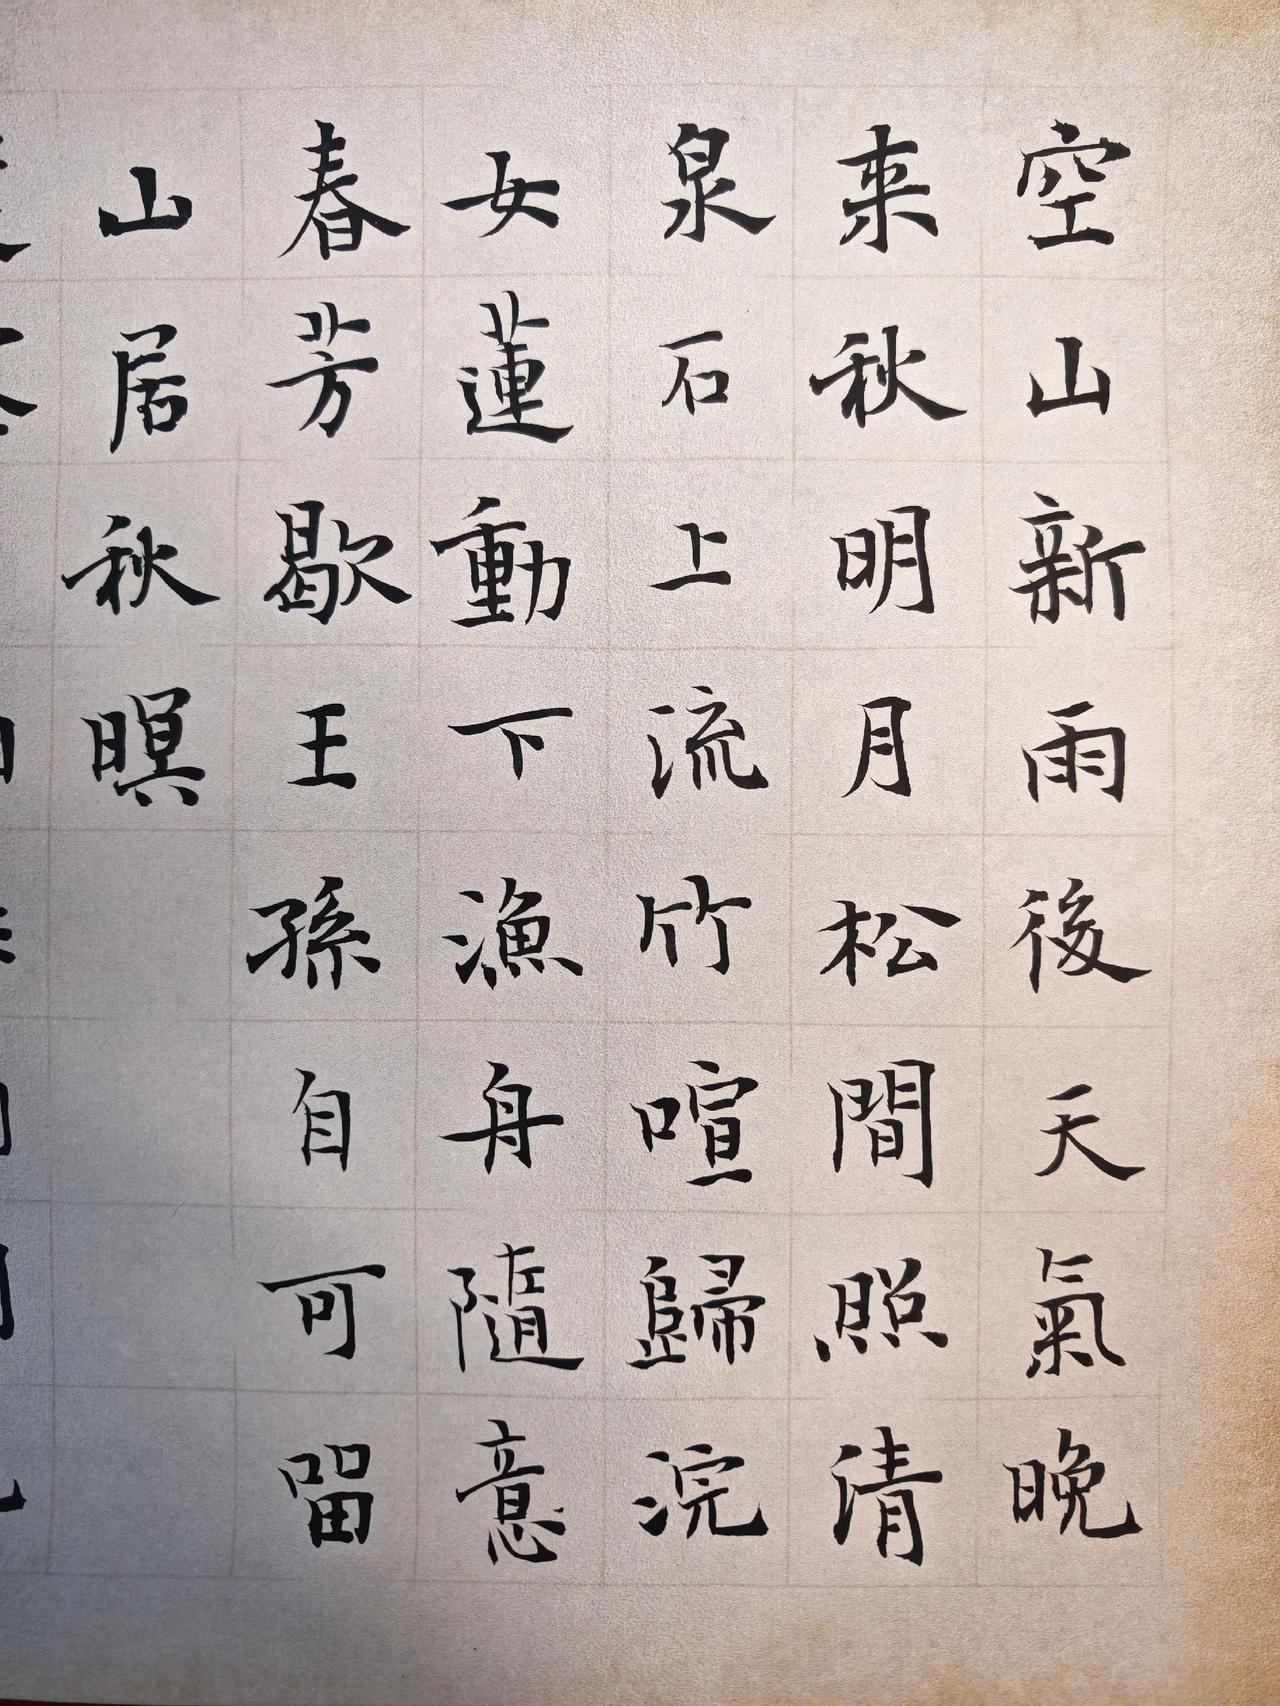 空山新雨後天氣晚
来秋明月松間照清
泉石上流竹喧歸浣
女蓮動下漁舟隨意
春芳歇王孫自可留
山居秋暝